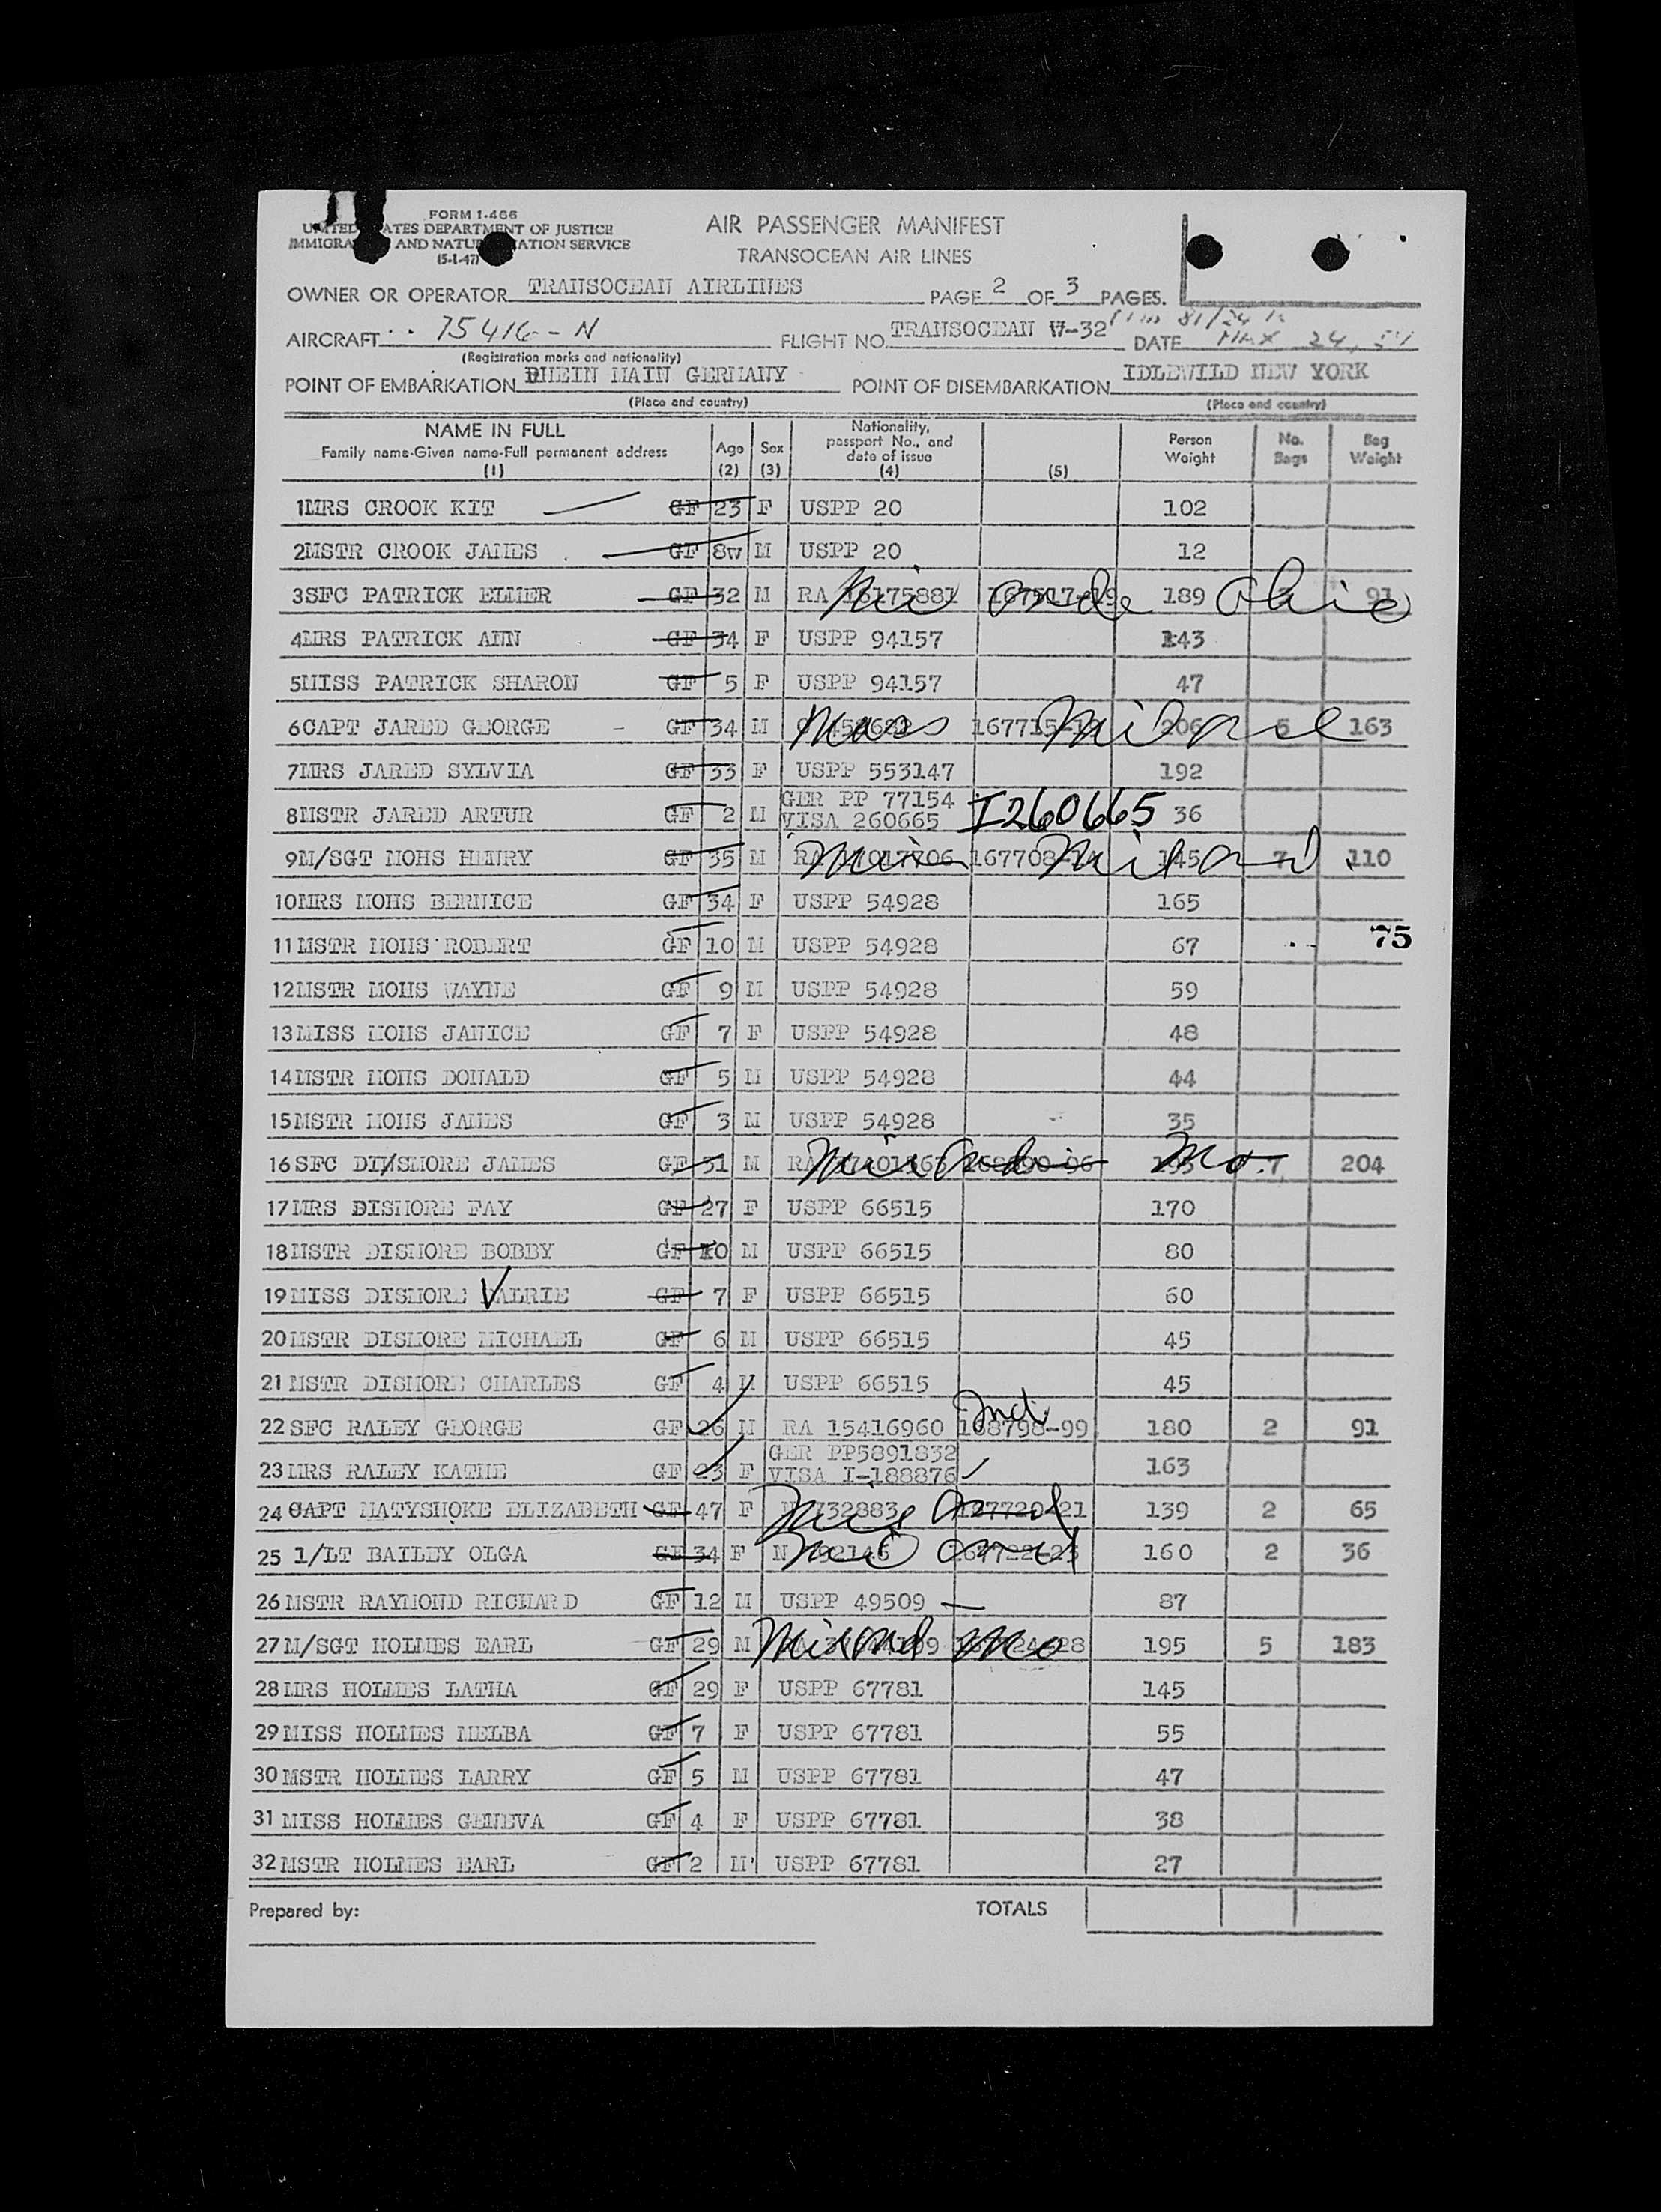 FORM 1-466
UNITED STATES DEPARTMENT OF JUSTICE
IMMIGRA AND NATU ATION SERVICE
(5-1-47)
AIR PASSENGER MANIFEST
TRANSOCEAN AIR LINES
OWNER OR OPERATOR TRANSOCEAN AIRLINES PAGE 2 OF 3 PAGES.
AIRCRAFT 75416-N FLIGHT NO. TRANSOCEAN W-32 DATE MAY 24, 54
(Registration marks and nationality)
POINT OF EMBARKATION RHEIN MAIN GERMANY POINT OF DISEMBARKATION IDLEWILD NEW YORK
(Place and country) (Place and country)
NAME IN FULL Family name-Given name-Full permanent address (1) Age (2) Sex (3) Nationality, passport No., and date of issue (4) (5) Person Weight No. Bags Bag Weight
1 MRS CROOK KIT GF 23 F USPP 20 102
2 MSTR CROOK JAMES GF 8w M USPP 20 12
3 SFC PATRICK ELMER GF 32 M RA 16175881 189 Ohio 91
4 MRS PATRICK ANN GF 34 F USPP 94157 143
5 MISS PATRICK SHARON GF 5 F USPP 94157 47
6 CAPT JARED GEORGE GF 34 M Mass 167715 206 5 163
7 MRS JARED SYLVIA GF 33 F USPP 553147 192
8 MSTR JARED ARTUR GF 2 M GER PP 77154 VISA 260665 I260665 36
9 M/SGT MOHS HENRY GF 35 M RA 167708 145 7 110
10 MRS MOHS BERNICE GF 34 F USPP 54928 165
11 MSTR MOHS ROBERT GF 10 M USPP 54928 67
75
12 MSTR MOHS WAYNE GF 9 M USPP 54928 59
13 MISS MOHS JANICE GF 7 F USPP 54928 48
14 MSTR MOHS DONALD GF 5 M USPP 54928 44
15 MSTR MOHS JAMES GF 3 M USPP 54928 35
16 SFC DI/SMORE JAMES GF 31 M RA Mo. 7 204
17 MRS DISMORE FAY GF 27 F USPP 66515 170
18 MSTR DISMORE BOBBY GF 10 M USPP 66515 80
19 MISS DISMORE VALRIE GF 7 F USPP 66515 60
20 MSTR DISMORE MICHAEL GF 6 M USPP 66515 45
21 MSTR DISMORE CHARLES GF 4 M USPP 66515 45
22 SFC RALEY GEORGE GF 26 M RA 15416960 Ind 168798-99 180 2 91
23 MRS RALEY KATHE GF 23 F GER PP5891832 VISA I-188876 163
24 CAPT MATYSHOKE ELIZABETH GF 47 F N 732883 167720-21 139 2 65
25 1/LT BAILEY OLGA GF 34 F N 160 2 36
26 MSTR RAYMOND RICHARD GF 12 M USPP 49509 87
27 M/SGT HOLMES EARL GF 29 M Mo 195 5 183
28 MRS HOLMES LATHA GF 29 F USPP 67781 145
29 MISS HOLMES MELBA GF 7 F USPP 67781 55
30 MSTR HOLMES LARRY GF 5 M USPP 67781 47
31 MISS HOLMES GENEVA GF 4 F USPP 67781 38
32 MSTR HOLMES EARL GF 2 M USPP 67781 27
Prepared by: TOTALS